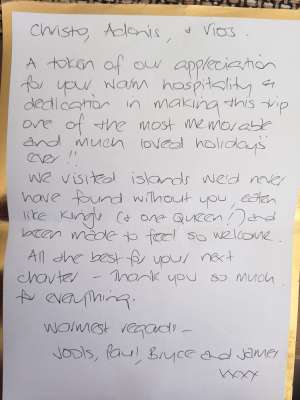 Christo, Adonis, & Vios.
A token of our appreciation
for your warm hospitality &
dedication in making this trip
one of the most memorable
and much loved holiday's
ever!!
We visited islands we'd never
have found without you, eaten
like King's (& one Queen!) and
been made to feel so welcome.
All the best for your next
charter - Thank you so much
for everything.
Warmest regards -
Jools, Paul, Bryce and James
xxxx